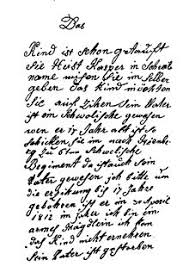 Das
Kind ist schon getauft
Sie Heist Kasper in Schreib
name missen Sie im selber
geben das Kind möchten
Sie aufZihen sein Vater
ist ein Schwolische gewesen
wen er 17 Jahr alt ist so
schicken sie im nach Nirenberg
zu 6ten Schwolische
Regiment da ist auch sein
Vater gewesen ich bitte um
die erzikung bis 17 Jahre
gebohren ist er im 30 Aperil
1812 im Jaher ich bin ein
armes Mägdlein ich kan
das Kind nicht ernehren
Sein Vater ist gestorben